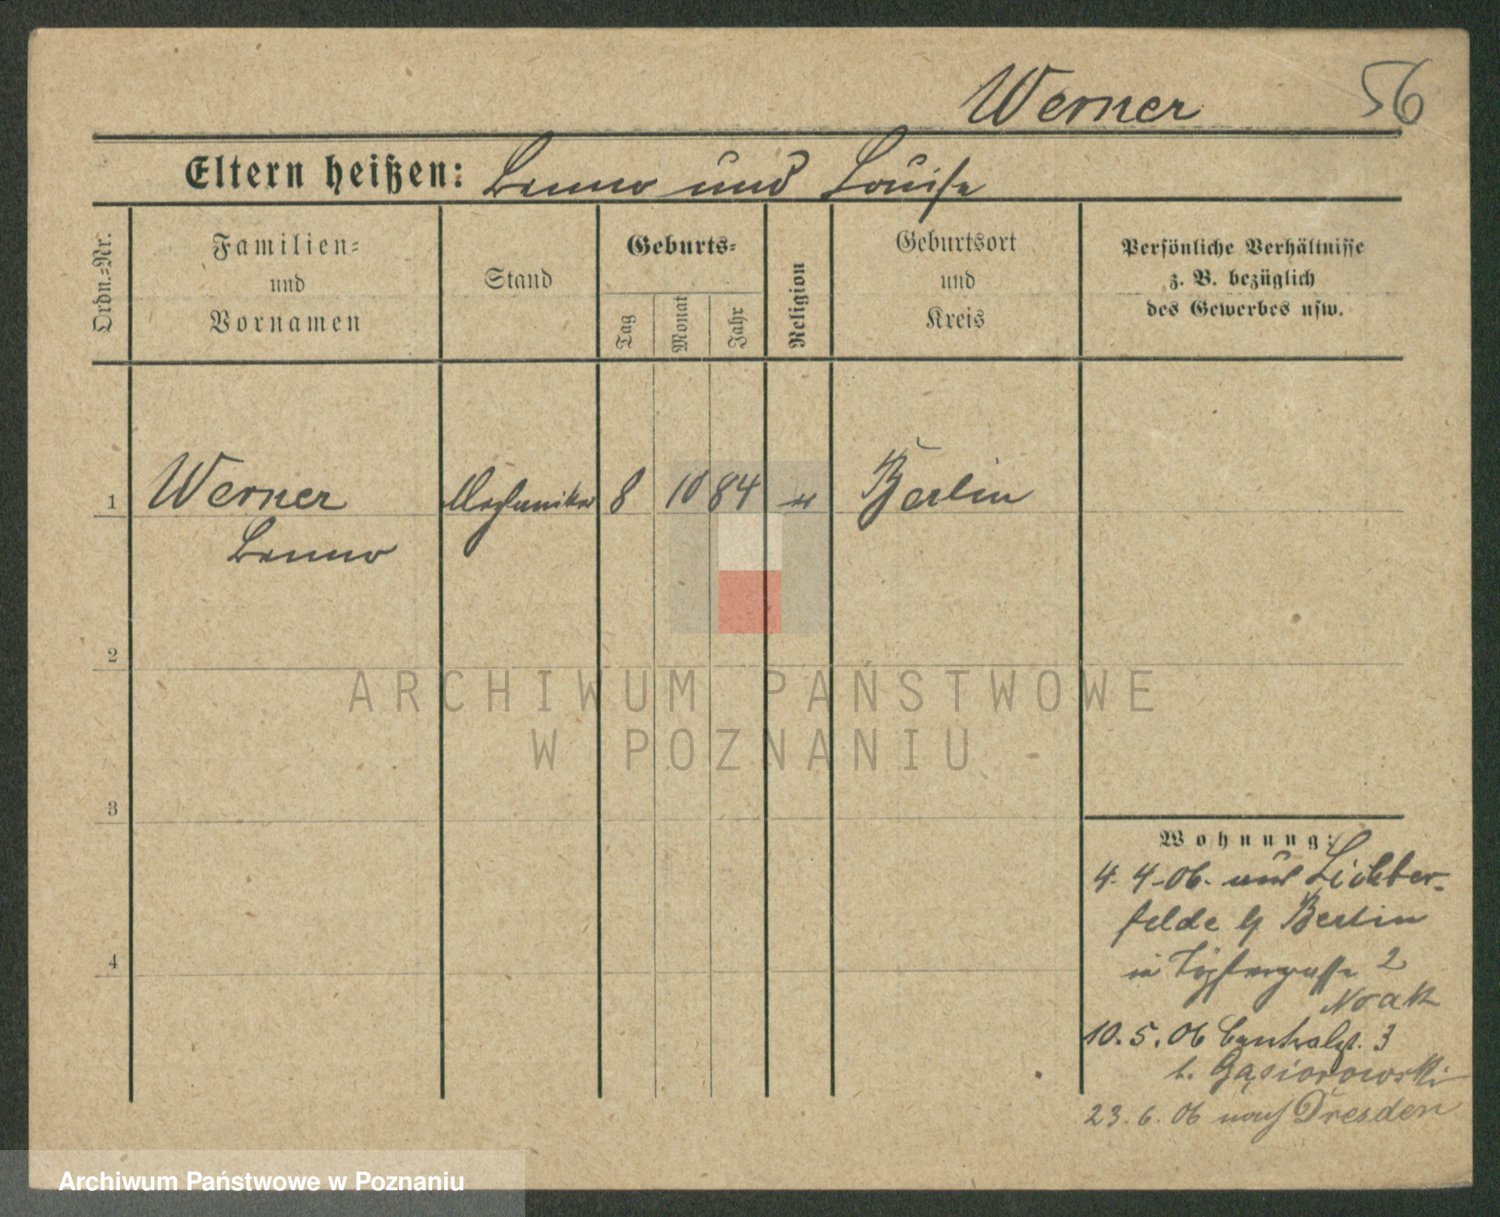 Werner 56
Eltern heißen: Benno und Louise
Ordn.=Nr.
Familien=
und
Vornamen
Stand
Geburts=
Tag
Monat
Jahr
Religion
Geburtsort
und
Kreis
Persönliche Verhältnisse
z. B. bezüglich
des Gewerbes usw.
1 Werner Mechaniker 8 10 84 Berlin
Benno
2
3
4
Wohnung:
4. 4. 06. aus Lichter-
felde b/ Berlin
in 2
Noak
10. 5. 06 Centralst. 3
b. Gąsiorowski
23. 6. 06 nach Dresden
ARCHIWUM PAŃSTWOWE
W POZNANIU
Archiwum Państwowe w Poznaniu